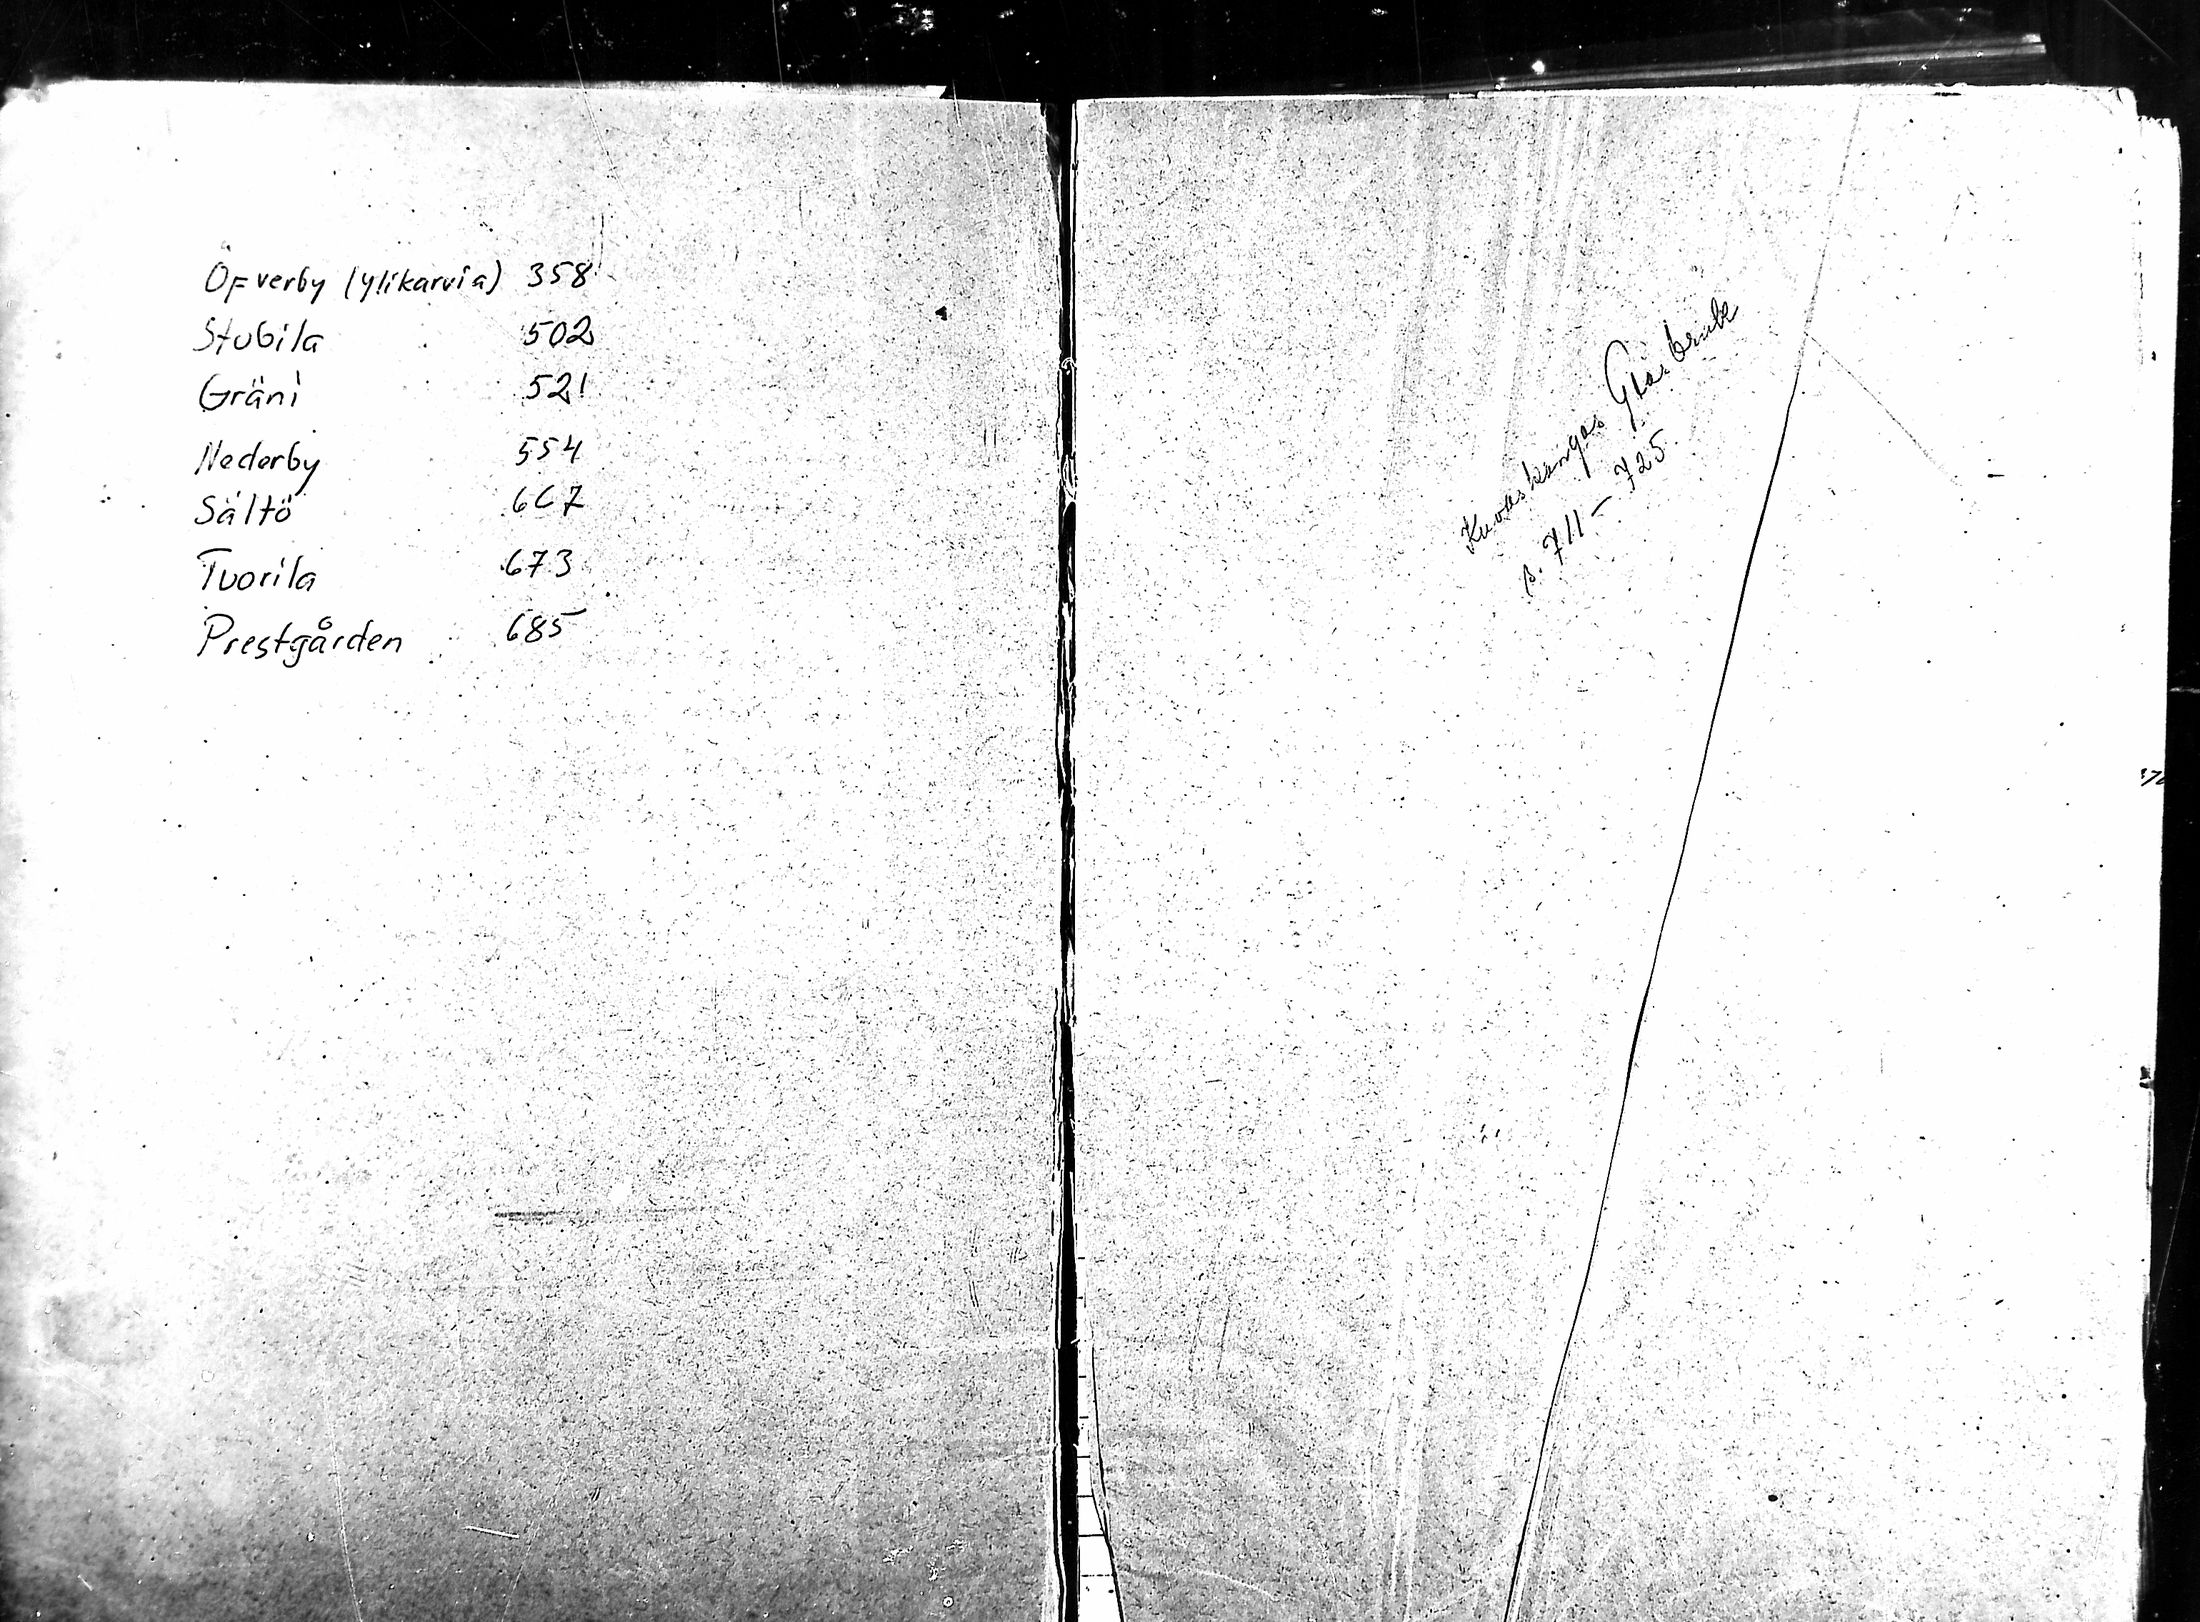 Öfverby (Ylikarvia) 358
Stubila 502
Gräni 521
Nederby 554
Sältö 667
Tuorila 673
Prestgården 685
Kuvaskangas Glasbruk
s. 711 - 725